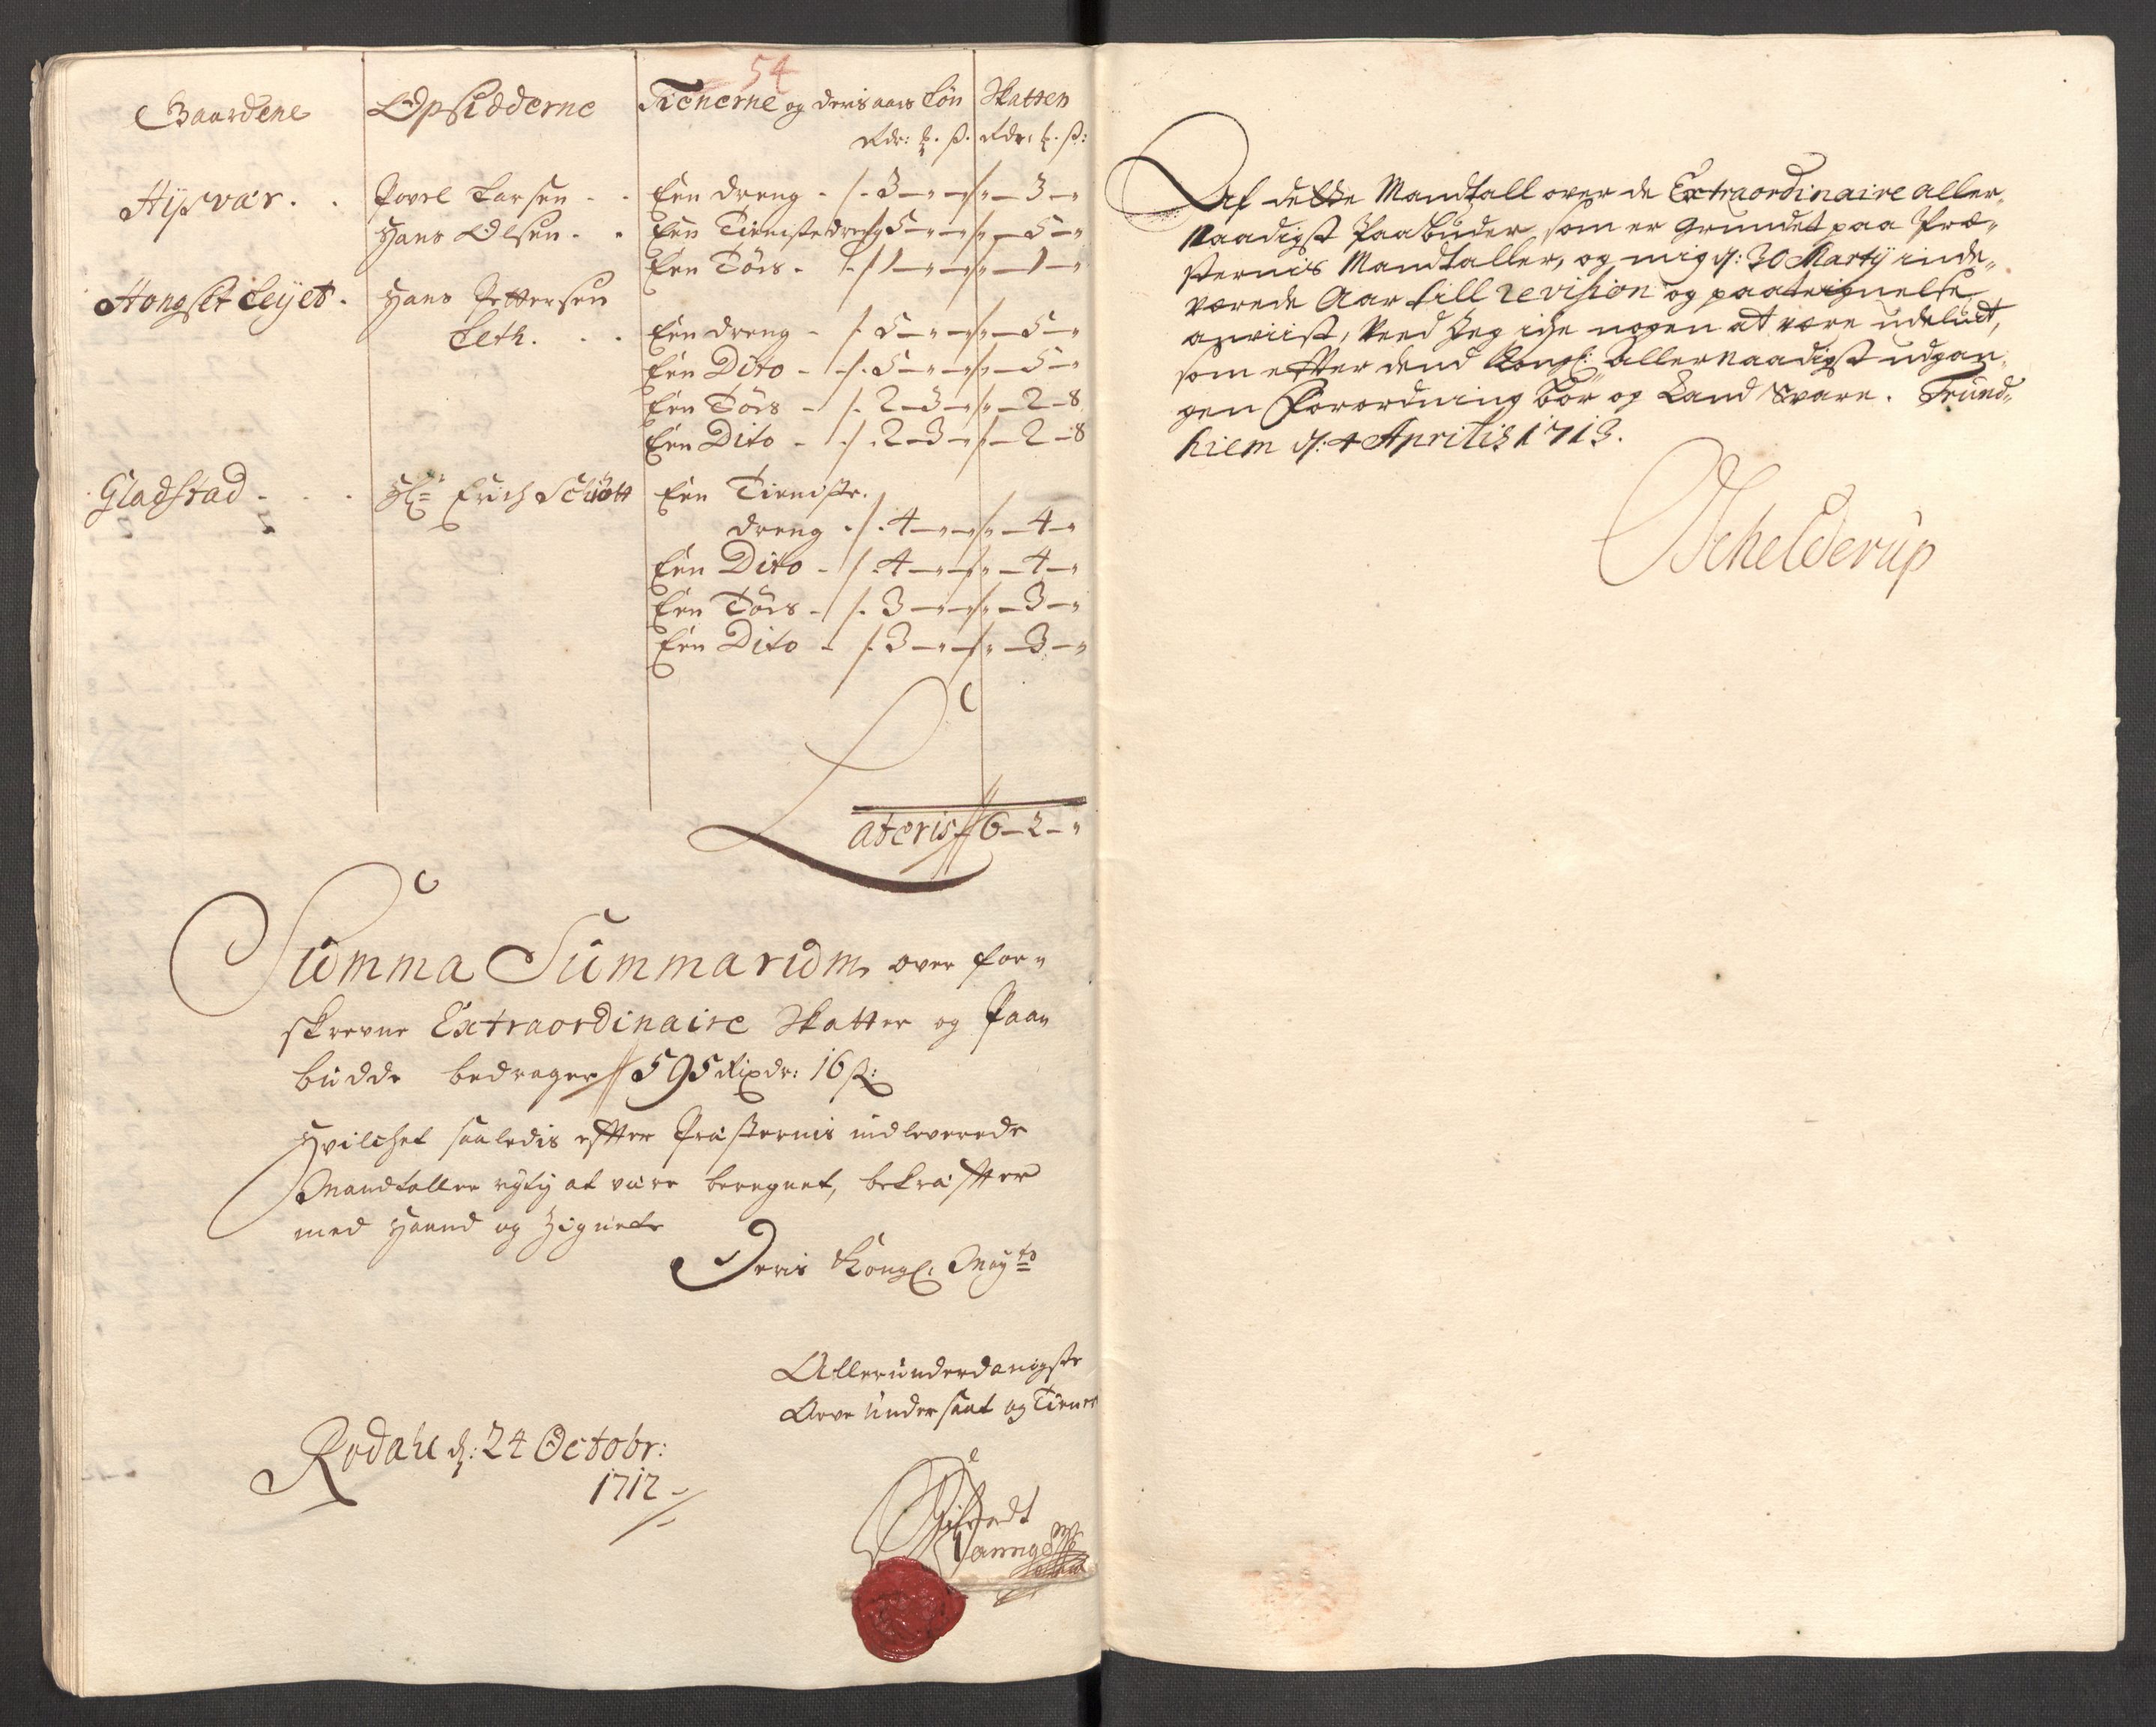 54
Gaardene Opsidderne Tienerne og deris aars Løn Skatten
Rdr: ß. Rdr: ß:
Hysvær . . Povel Larsen - - Een dreng - 3 - " - 3 - "
Hans Olsen - - Een Tienistedreng 5 - " - 5 - "
Een Tøes - 1 - " - 1 - "
Hongset Leyet . Hans Pettersen
Leth . . . Een dreng - 5 - " - 5 - "
Een Dito - 5 - " - 5 - "
Een Tøes - 2 - 3 - 2 - 8
Een Dito - 2 - 3 - 2 - 8
Gladstad - . . Hr: Erich Schiøtt Een Tieniste.
dreng - 4 - " - 4 - "
Een Dito - 4 - " - 4 - "
Een Tøes - 3 - " - 3 - "
Een Dito - 3 - " - 3 - "
Lateris 6 - 2 - "
Summa Summarum over for-
skrevne Extraordinaire Skatter og Paa-
budde bedrager 595 Rixdr: 16 ß:
Hvilchet saaledis effter Præsternis indleverede
Mandtaller rigtig at være beregnet, bekræffter
med Haand og Zignete
Deris Kongl: Mayts
Allerunderdanigste
Arve Undersaat og Tiener
Rodahl d: 24 Octobr:
1712 -
Af dette Mandtall over de Extraordinaire aller-
naadigst Paabuder, som er grundet paa Præ-
sternis Mandtaller, og mig d: 30 Martij inde-
værede Aar till revision og paateignelse
anviist, veed Jeg icke nogen at være udeluct,
som effter dend Kongl: allernaadigst udgan-
gen Forordning bør og kand svare. Trund-
hiem d: 4 Aprilis 1713.
Schelderup